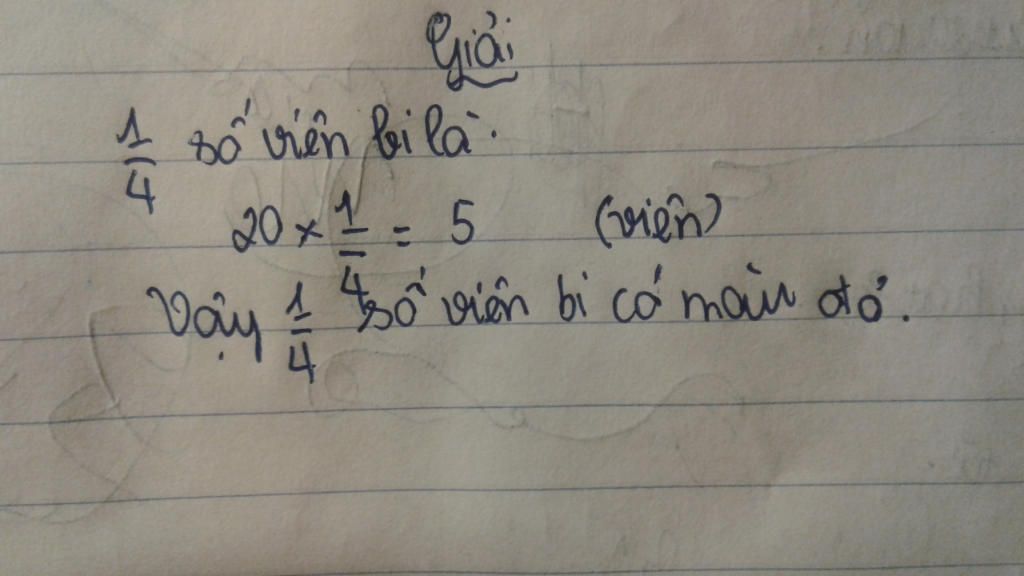 Giải
1/4 số viên bi là:
20 × 1/4 = 5 (viên)
Vậy 1/4 số viên bi có màu đỏ.